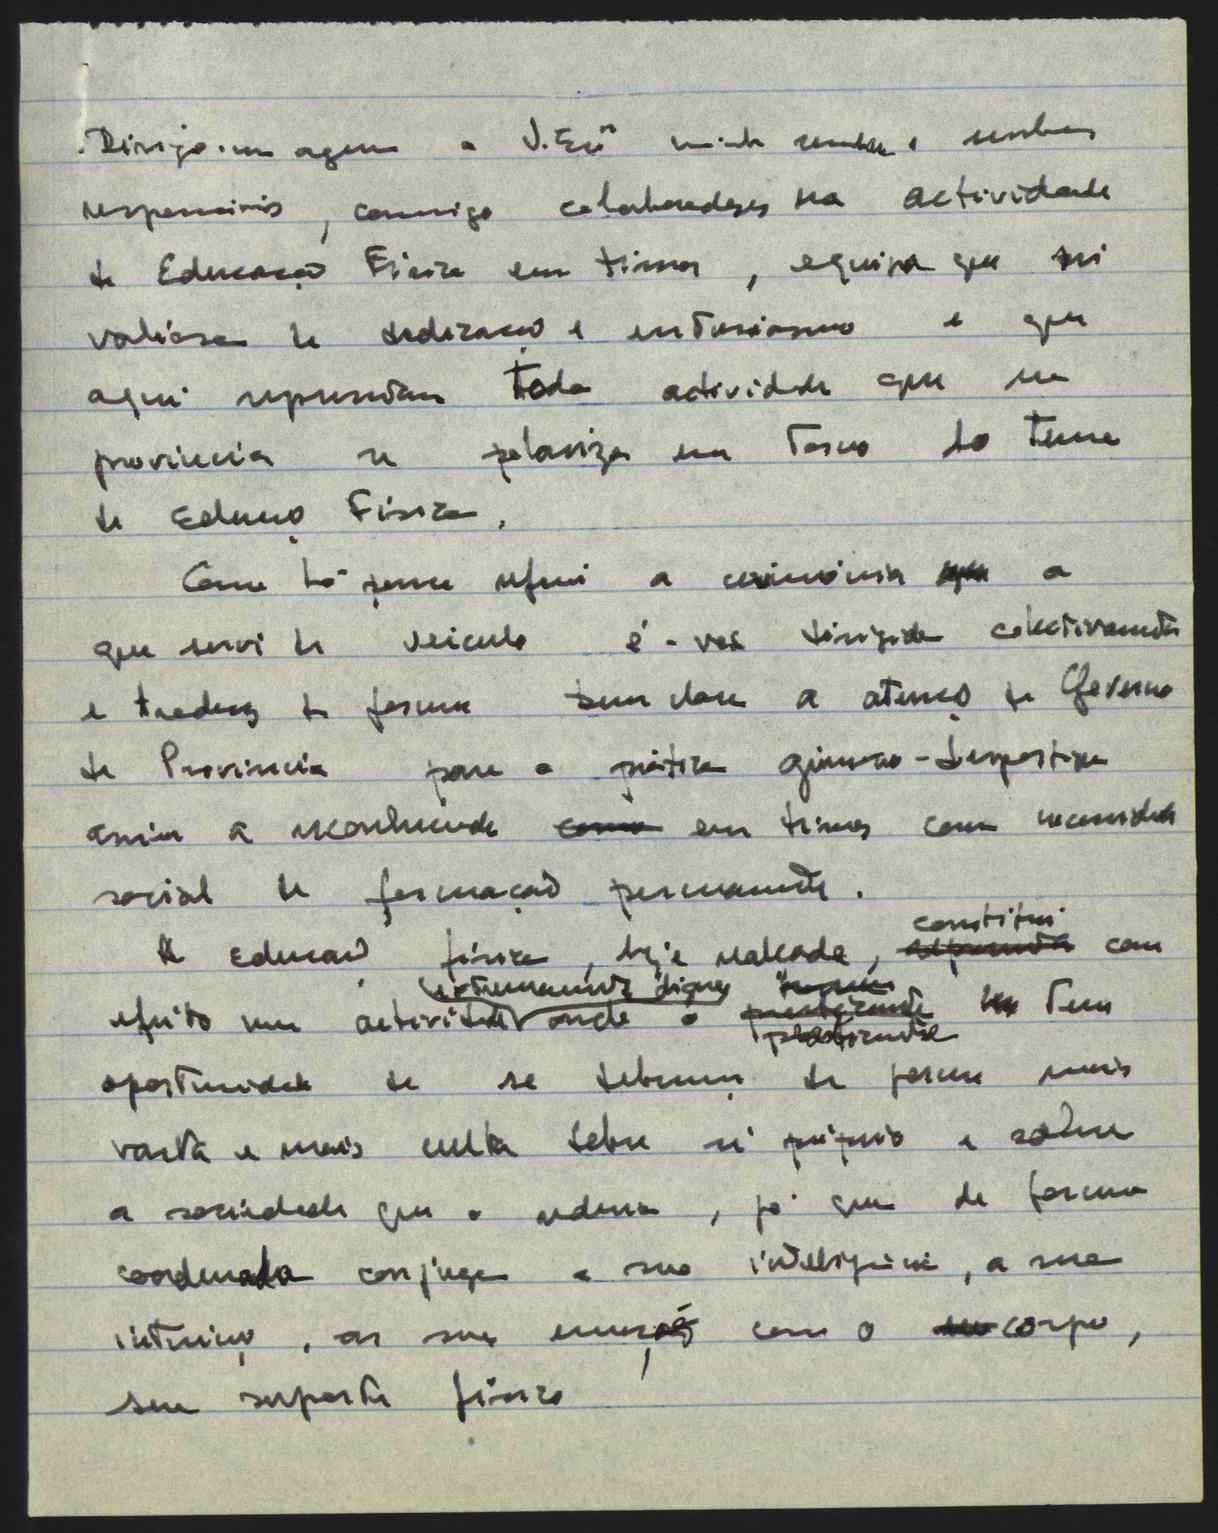 Dirijo-me agora a V. Exªs minhas senhoras e senhores
responsáveis, comigo colaboradores na actividade
de Educação Física em Timor, equipa que sei
valiosa de dedicação e entusiasmo e que
aqui representam toda actividade que na
província se polariza em torno do tema
de Educação Física.
Como há pouco referi a cerimónia a
que servi de veículo é-vos dirigida colectivamente
e traduz de forma bem clara a atenção do Governo
da Província para a prática gimno-desportiva
assim a reconhecendo como em Timor com necessidade
social de formação permanente.
A Educação física, hoje realçada, constitui com
efeito uma actividade extremamente digna onde o praticante tem
oportunidade de se debruçar de forma mais
vasta e mais culta sobre si próprio e sobre
a sociedade que o rodeia, já que de forma
coordenada conjuga a sua inteligência, a sua
intuição, as suas emoções com o corpo,
seu suporte físico